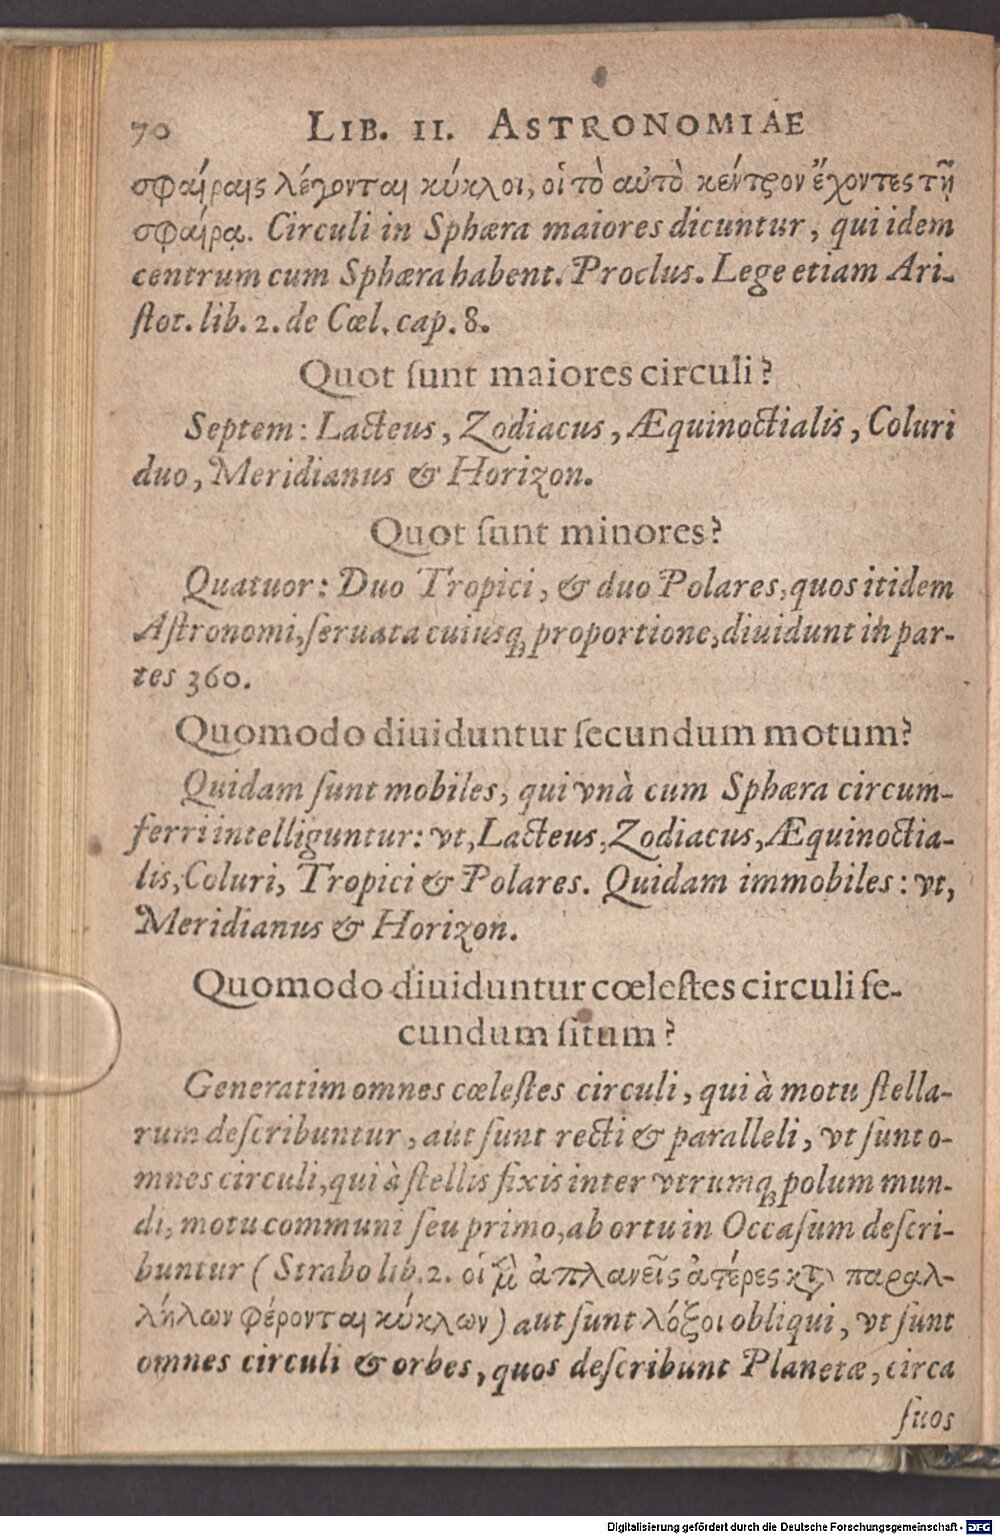 70 LIB. II. ASTRONOMIAE
σφαίραις λέγονται κύκλοι, οἱ τὸ αὐτὸ κέντρον ἔχοντες τῇ
σφαίρᾳ. Circuli in Sphæra maiores dicuntur, qui idem
centrum cum Sphæra habent. Proclus. Lege etiam Ari-
ſtot. lib. 2. de Cœl. cap. 8.
Quot ſunt maiores circuli?
Septem: Lacteus, Zodiacus, Æquinoctialis, Coluri
duo, Meridianus & Horizon.
Quot ſunt minores?
Quatuor: Duo Tropici, & duo Polares, quos itidem
Aſtronomi, ſeruata cuiusq; proportione, diuidunt in par-
tes 360.
Quomodo diuiduntur ſecundum motum?
Quidam ſunt mobiles, qui vnà cum Sphæra circum-
ferri intelliguntur: vt, Lacteus, Zodiacus, Æquinoctia-
lis, Coluri, Tropici & Polares. Quidam immobiles: vt,
Meridianus & Horizon.
Quomodo diuiduntur cœleſtes circuli ſe-
cundum ſitum?
Generatim omnes cœleſtes circuli, qui à motu ſtella-
rum deſcribuntur, aut ſunt recti & paralleli, vt ſunt o-
mnes circuli, qui à ſtellis fixis inter vtrumq; polum mun-
di, motu communi ſeu primo, ab ortu in Occaſum deſcri-
buntur (Strabo lib. 2. οἱ μὲν ἀπλανεῖς ἀϛέρες κατὰ παραλ-
λήλων φέρονται κύκλων) aut ſunt λόξοι obliqui, vt ſunt
omnes circuli & orbes, quos deſcribunt Planetæ, circa
ſuos
Digitalisierung gefördert durch die Deutsche Forschungsgemeinschaft - DFG